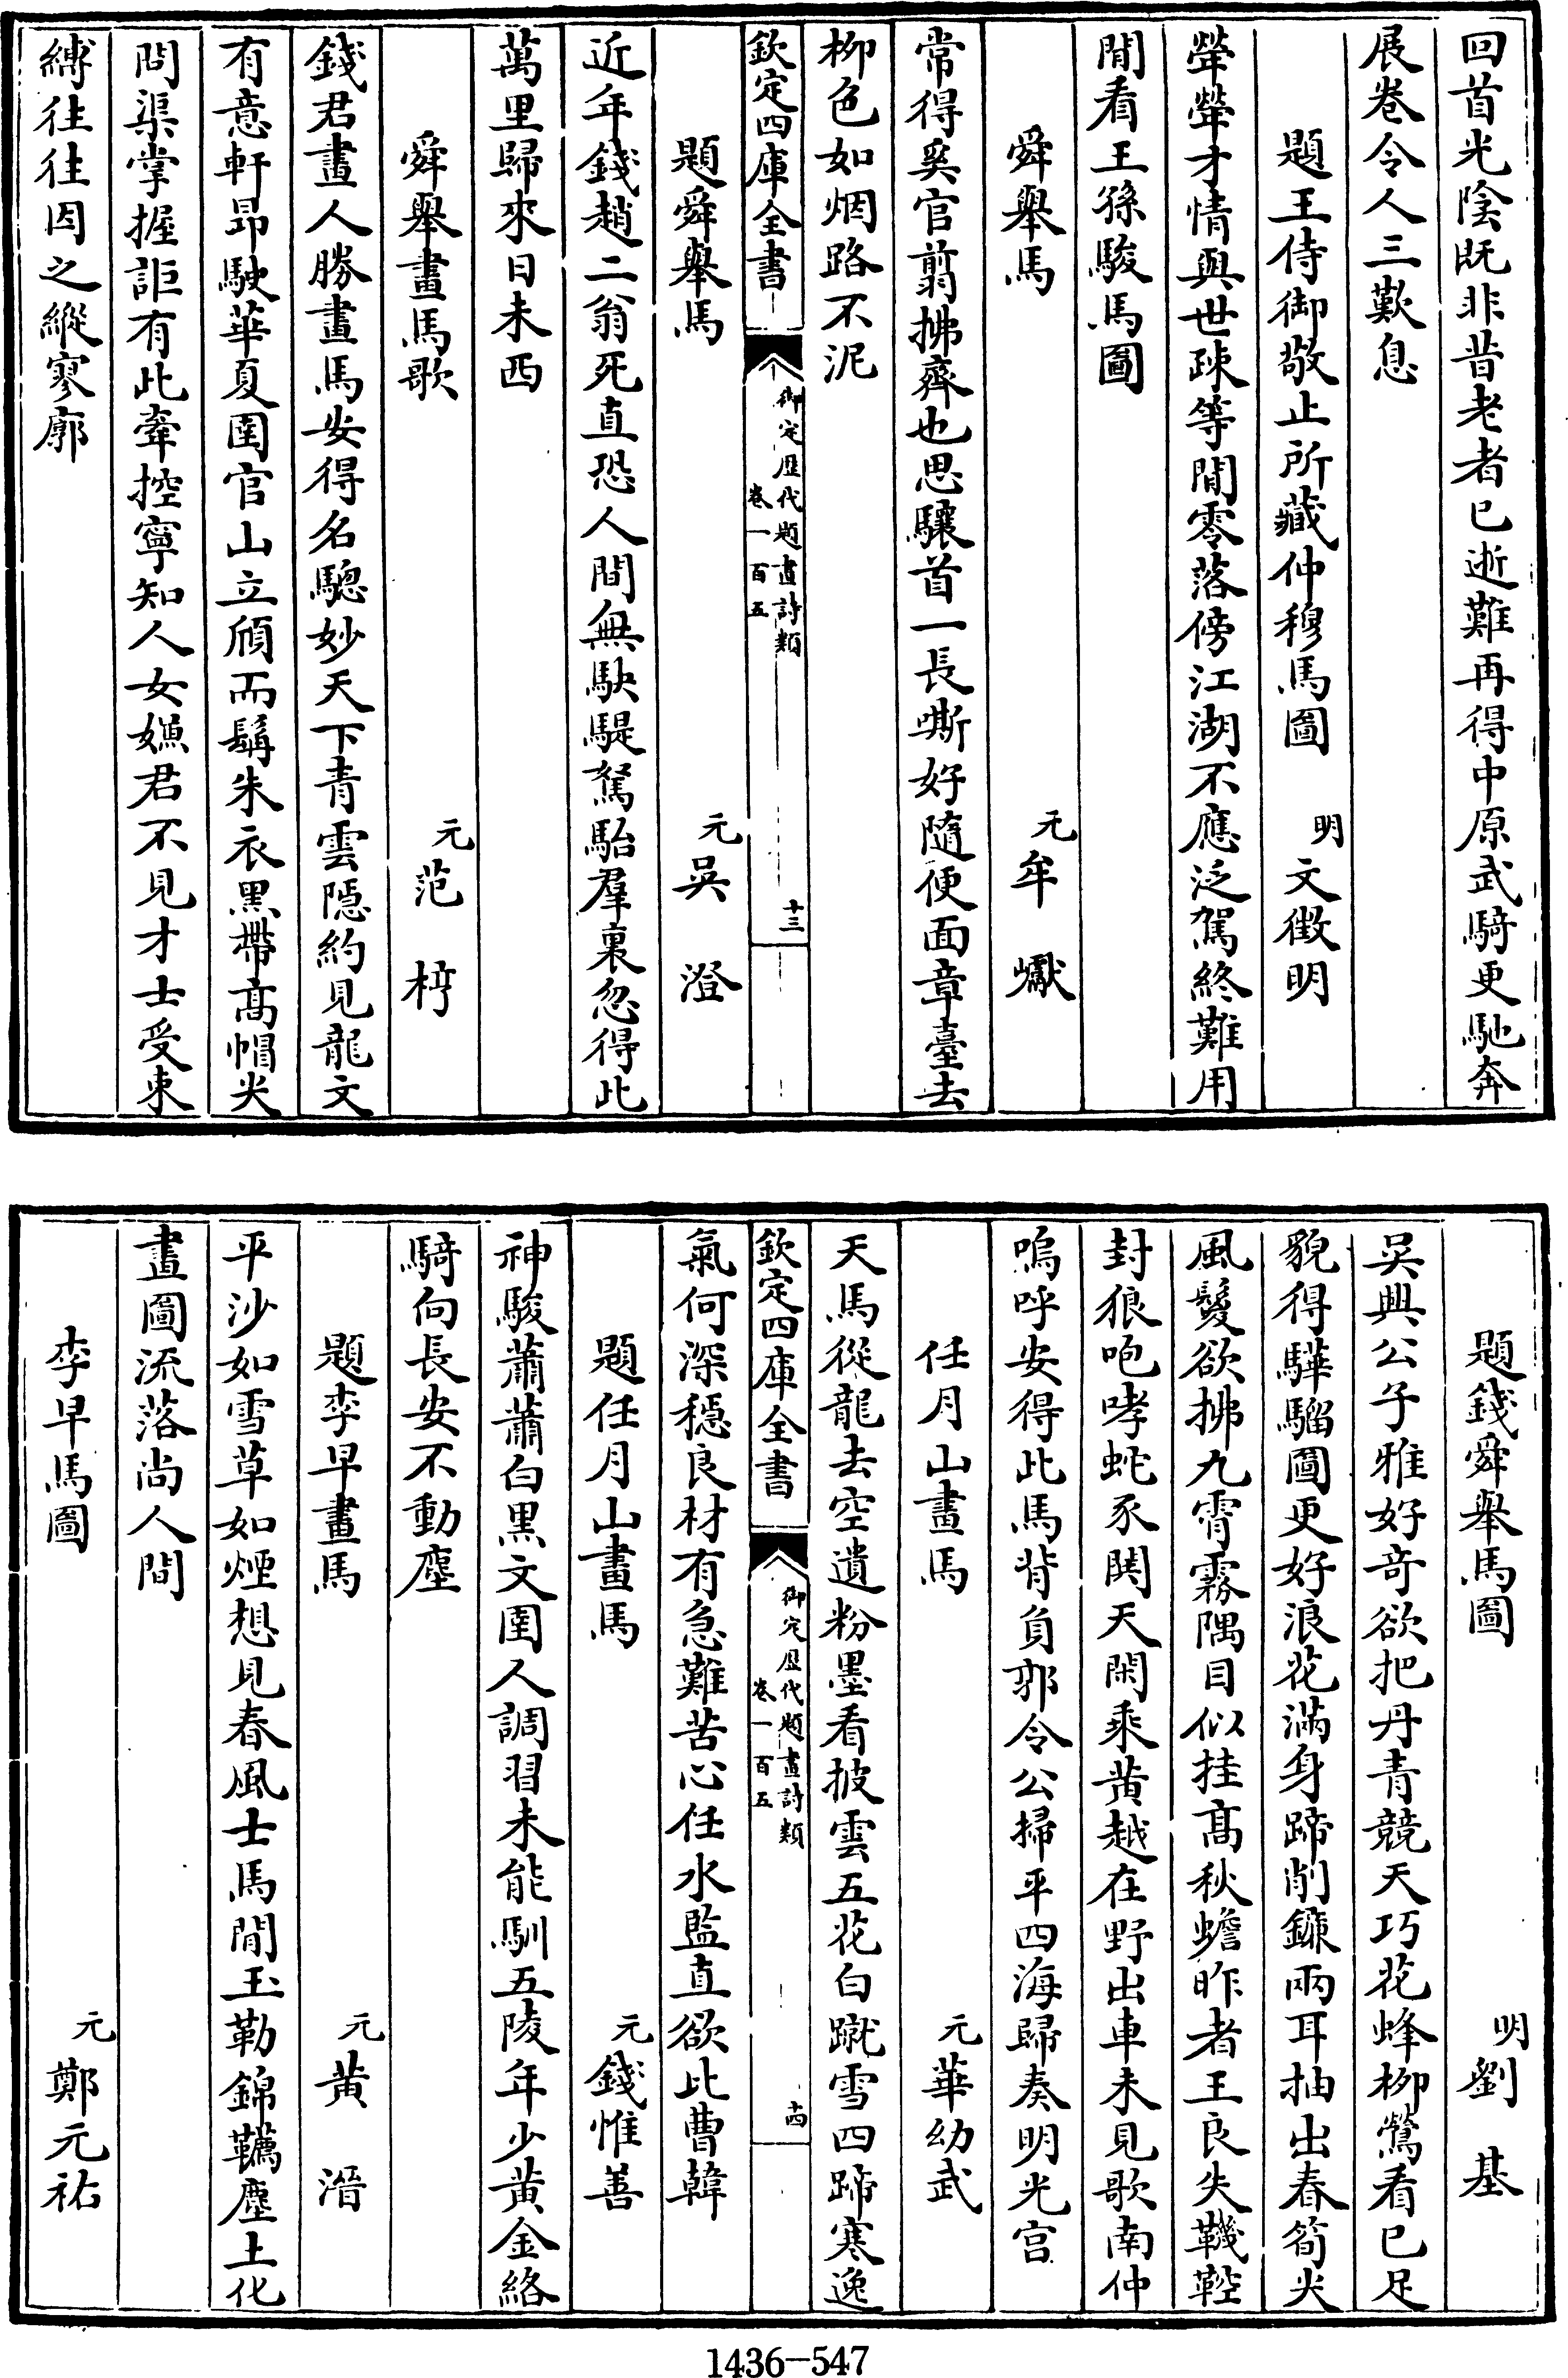 回首光陰既非昔老者已逝難再得中原武騎更馳奔
展卷令人三歎息
題王侍御敬止所藏仲穆馬圖 明 文徵明
犖犖才情與世疎等閒零落傍江湖不應泛駕終難用
閒看王孫駿馬圖
舜舉馬 元 牟 巘
常得奚官翦拂齊也思驤首一長嘶好隨便面章臺去
柳色如烟路不泥
欽定四庫全書 御定歷代題畫詩類 卷一百五 十三
題舜舉馬 元 吳 澄
近年錢趙二翁死直恐人間無駃騠駑駘羣裏忽得此
萬里歸來日未西
舜舉畫馬歌 元 范 梈
錢君畫人勝畫馬安得名驄妙天下青雲隱約見龍文
有意軒昂駛華夏圉官山立頎而鬍朱衣黑帶高帽尖
問渠掌握詎有此牽控寧知人女嫌君不見才士受束
縛往往因之縱寥廓
題錢舜舉馬圖 明 劉 基
吳興公子雅好奇欲把丹青競天巧花蜂柳鶯看已足
貌得驊騮圖更好浪花滿身蹄削鐮兩耳抽出春筍尖
風鬉欲拂九霄霧隅目似挂高秋蟾昨者王良失鞿鞚
封狼咆哮蛇豕鬨天閑乘黃越在野出車未見歌南仲
嗚呼安得此馬背負郭令公掃平四海歸奏明光宮
任月山畫馬 元 華幼武
天馬從龍去空遺粉墨看披雲五花白蹴雪四蹄寒逸
欽定四庫全書 御定歷代題畫詩類 卷一百五 十四
氣何深穩良材有急難苦心任水監直欲比曹韓
題任月山畫馬 元 錢惟善
神駿蕭蕭白黑文圉人調習未能馴五陵年少黃金絡
騎向長安不動塵
題李早畫馬 元 黃 溍
平沙如雪草如煙想見春風士馬閒玉勒錦韉塵土化
畫圖流落尚人間
李早馬圖 元 鄭元祐
1436-547